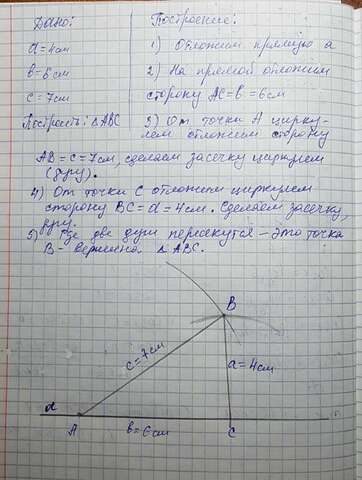 Дано:
Построение:
a=4см
1) Отложим прямую a
b=6см
2) На прямой отложим
c=7см
сторону AC=b=6см
Построить: △ABC
3) От точки A цирку-
лем отложим сторону
AB=c=7см, сделаем засечку циркулем
(дугу).
4) От точки C отложим циркулем
сторону BC=a=4см. Сделаем засечку,
дугу.
5) Где две дуги пересекутся – это точка
B – вершина △ABC.
B
c=7см
a=4см
a
A
b=6см
C